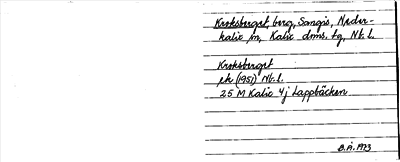 Kroksberget, berg, Sangis, Neder-
kalix sn, Kalix dms. tg, Nb. l.
Kroksberget
ek (1951) Nb. l.
25 M Kalix 4j Lappbäcken
B.Å. 1973